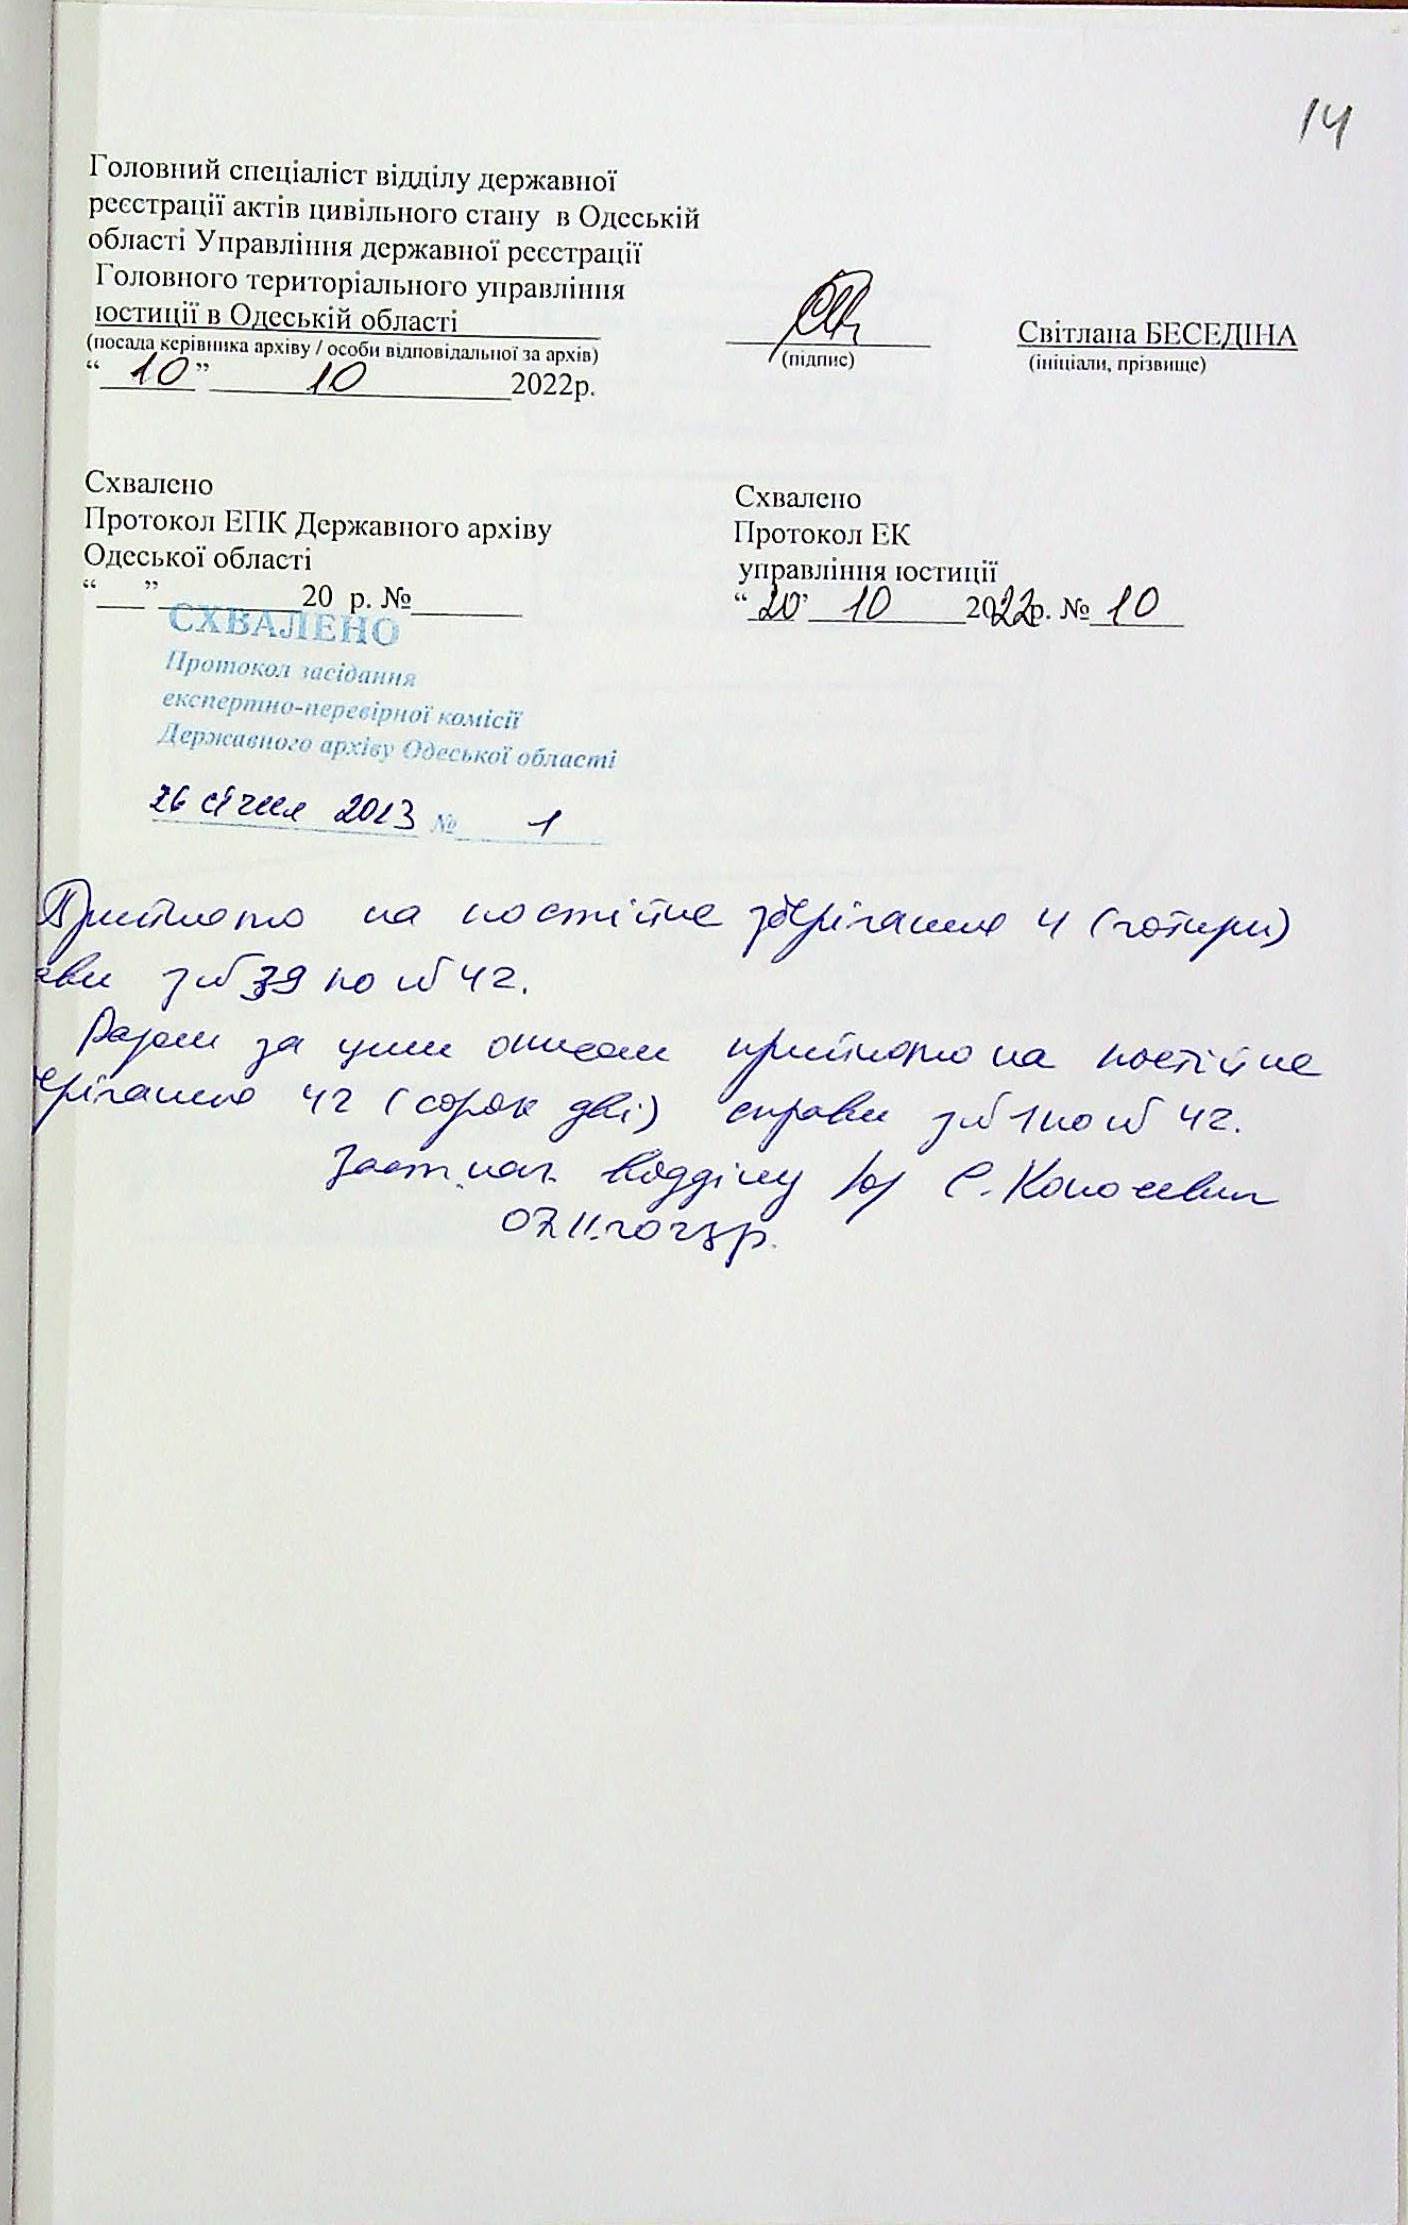 14
Головний спеціаліст відділу державної
реєстрації актів цивільного стану в Одеській
області Управління державної реєстрації
Головного територіального управління
юстиції в Одеській області
(посада керівника архіву / особи відповідальної за архів)
(підпис)
Світлана БЕСЕДІНА
(ініціали, прізвище)
“ 10 ” 10 2022р.
Схвалено
Протокол ЕПК Державного архіву
Одеської області
“___” _________20 р. №_______
Схвалено
Протокол ЕК
управління юстиції
“ 20 ” 10 2022р. № 10
СХВАЛЕНО
Протокол засідання
експертно-перевірної комісії
Державного архіву Одеської області
26 січня 2023 № 1
Прийнято на постійне зберігання 4 (чотири)
ави з №39 по №42.
Разом за цим описом прийнято на постійне
ерігання 42 (сорок дві) справи з №1 по №42.
Заст. нач. відділу С.
07.11.2023р.